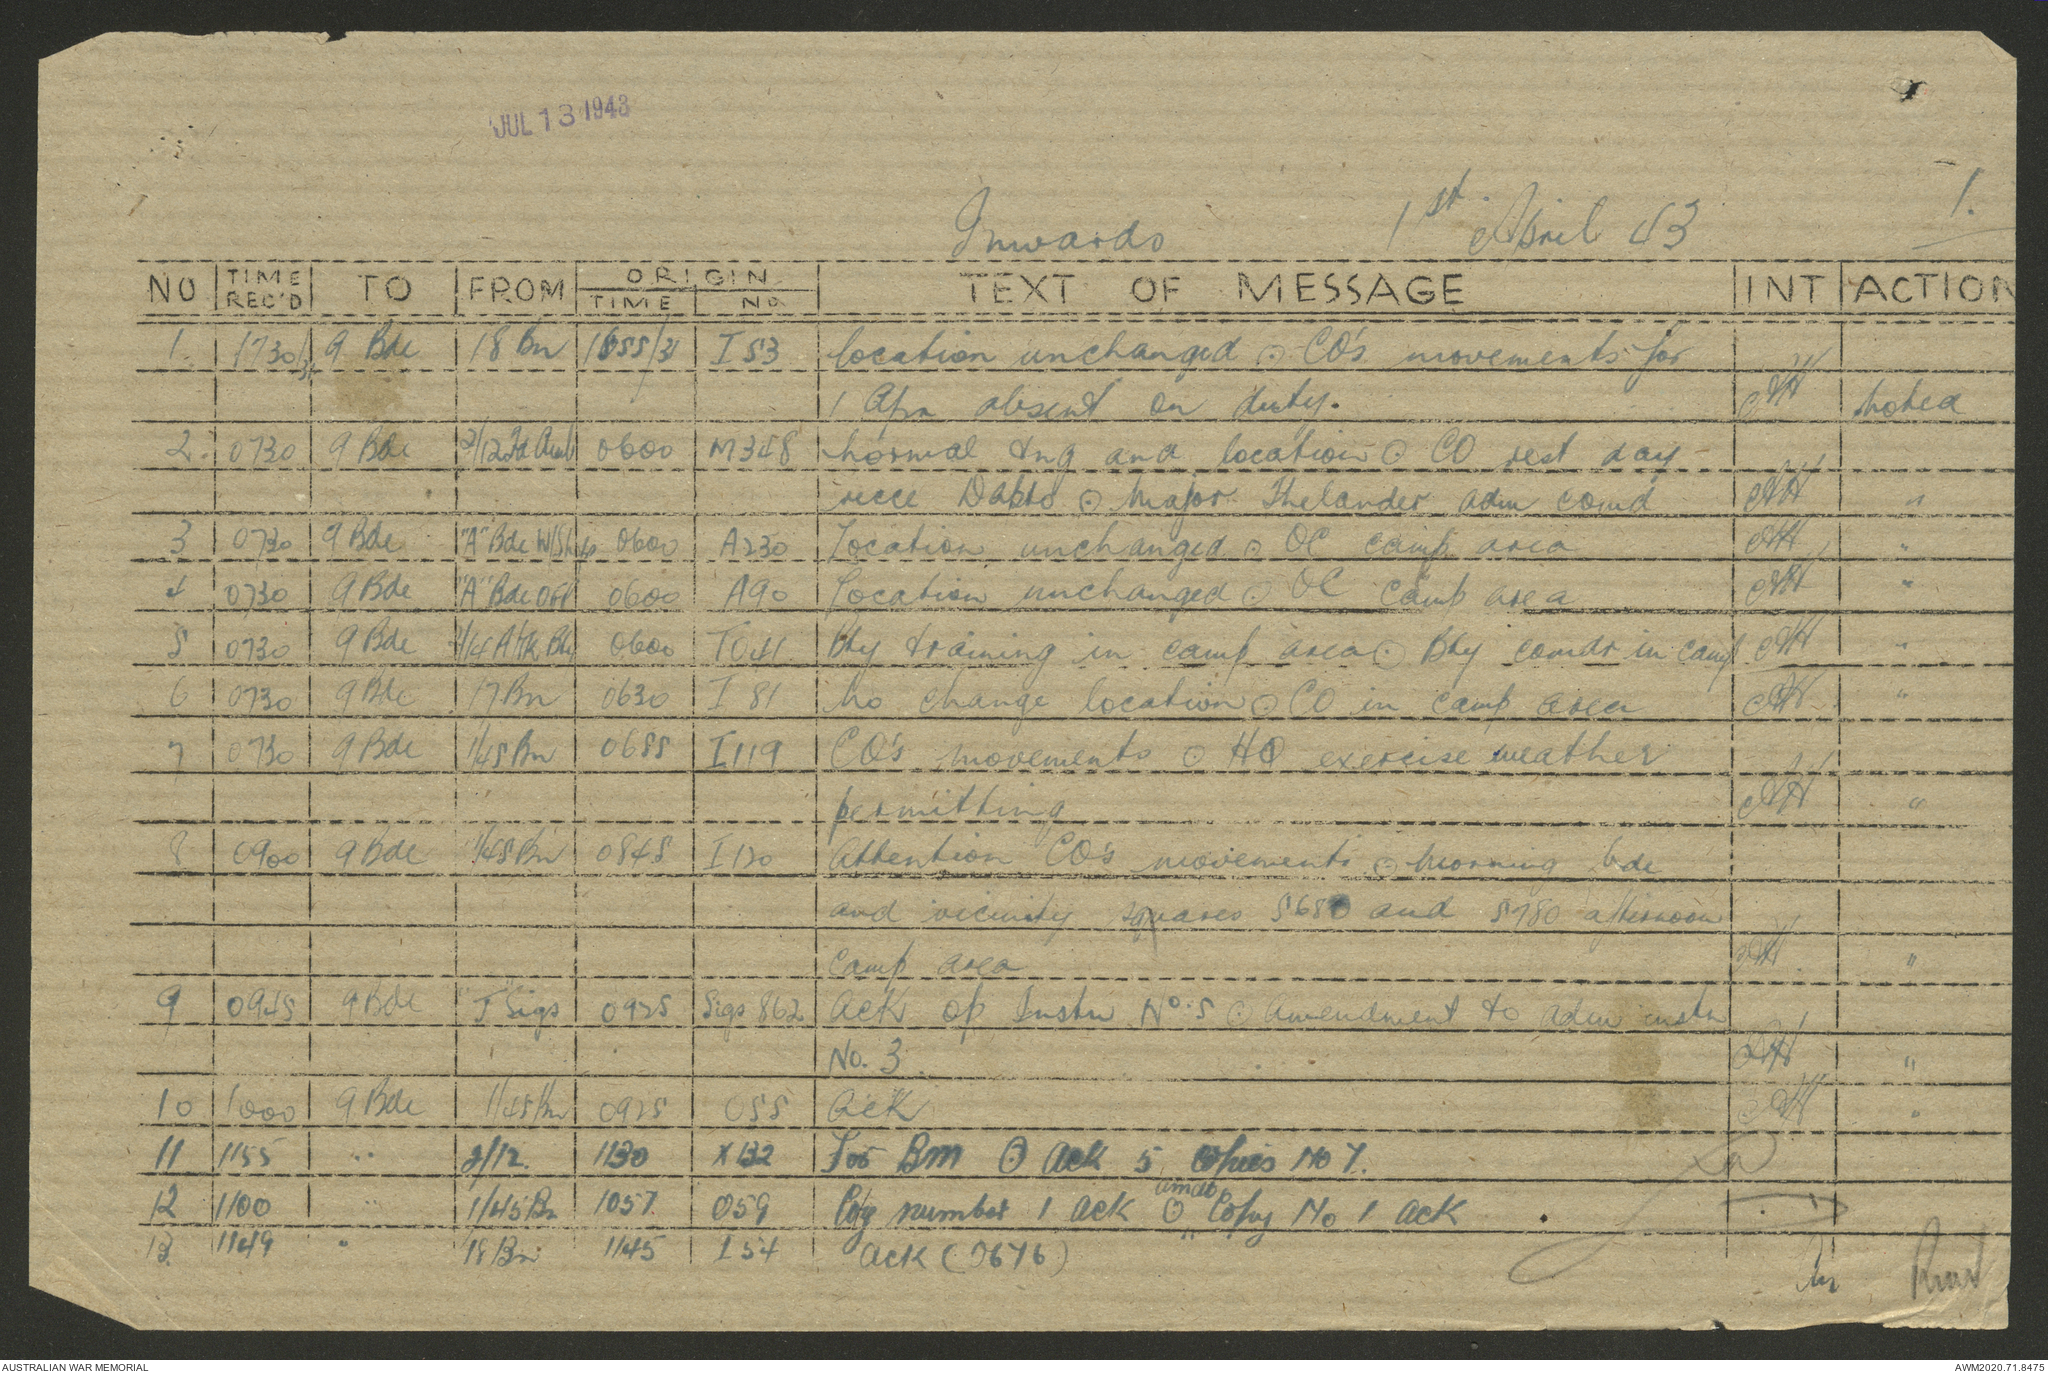 JUL 13 1943
1.
Inwards 1st. April 43
NO TIME REC'D TO FROM ORIGIN TIME NO. TEXT OF MESSAGE INT ACTION
1. 1730/31 9 Bde 18 Bn 1855/31 I 53 location unchanged ⊙ CO's movements for
1 Apr absent on duty. noted
2. 0730 9 Bde 2/12 Fd Amb 0600 M348 normal tng and location ⊙ CO rest day
recce Dapto ⊙ Major Thelander adm comd "
3 0730 9 Bde "A" Bde W/Shop 0600 A230 Location unchanged ⊙ OC camp area "
4 0730 9 Bde "A" Bde 0600 A90 Location unchanged ⊙ OC camp area "
5 0730 9 Bde A/tk Bty 0600 TO41 Bty training in camp area ⊙ Bty comdr in camp "
6 0730 9 Bde 17 Bn 0630 I 81 No change location ⊙ CO in camp area "
7 0730 9 Bde 1/45 Bn 0655 I 119 CO's movements ⊙ HQ exercise weather
permitting "
8 0900 9 Bde 1/45 Bn 0845 I 120 Attention CO's movements ⊙ morning bde
and vicinity squares 5680 and 5780 afternoon
camp area "
9 0945 9 Bde "J" Sigs 0925 Sigs 862 Ack op Instn No. 5 ⊙ Amendment to adm instn
No. 3 "
10 1000 9 Bde 1/45 Bn 0925 O55 Ack "
11 1155 " 2/12. 1130 X132 For BM ⊙ Ack 5 copies No 7.
12 1100 " 1/45 Bn 1057 O59 Cpy number 1 ack ⊙ amdt Copy No 1 ack
13. 1149 " 18 Bn 1145 I 54 Ack (0676)
AUSTRALIAN WAR MEMORIAL AWM2020.71.8475